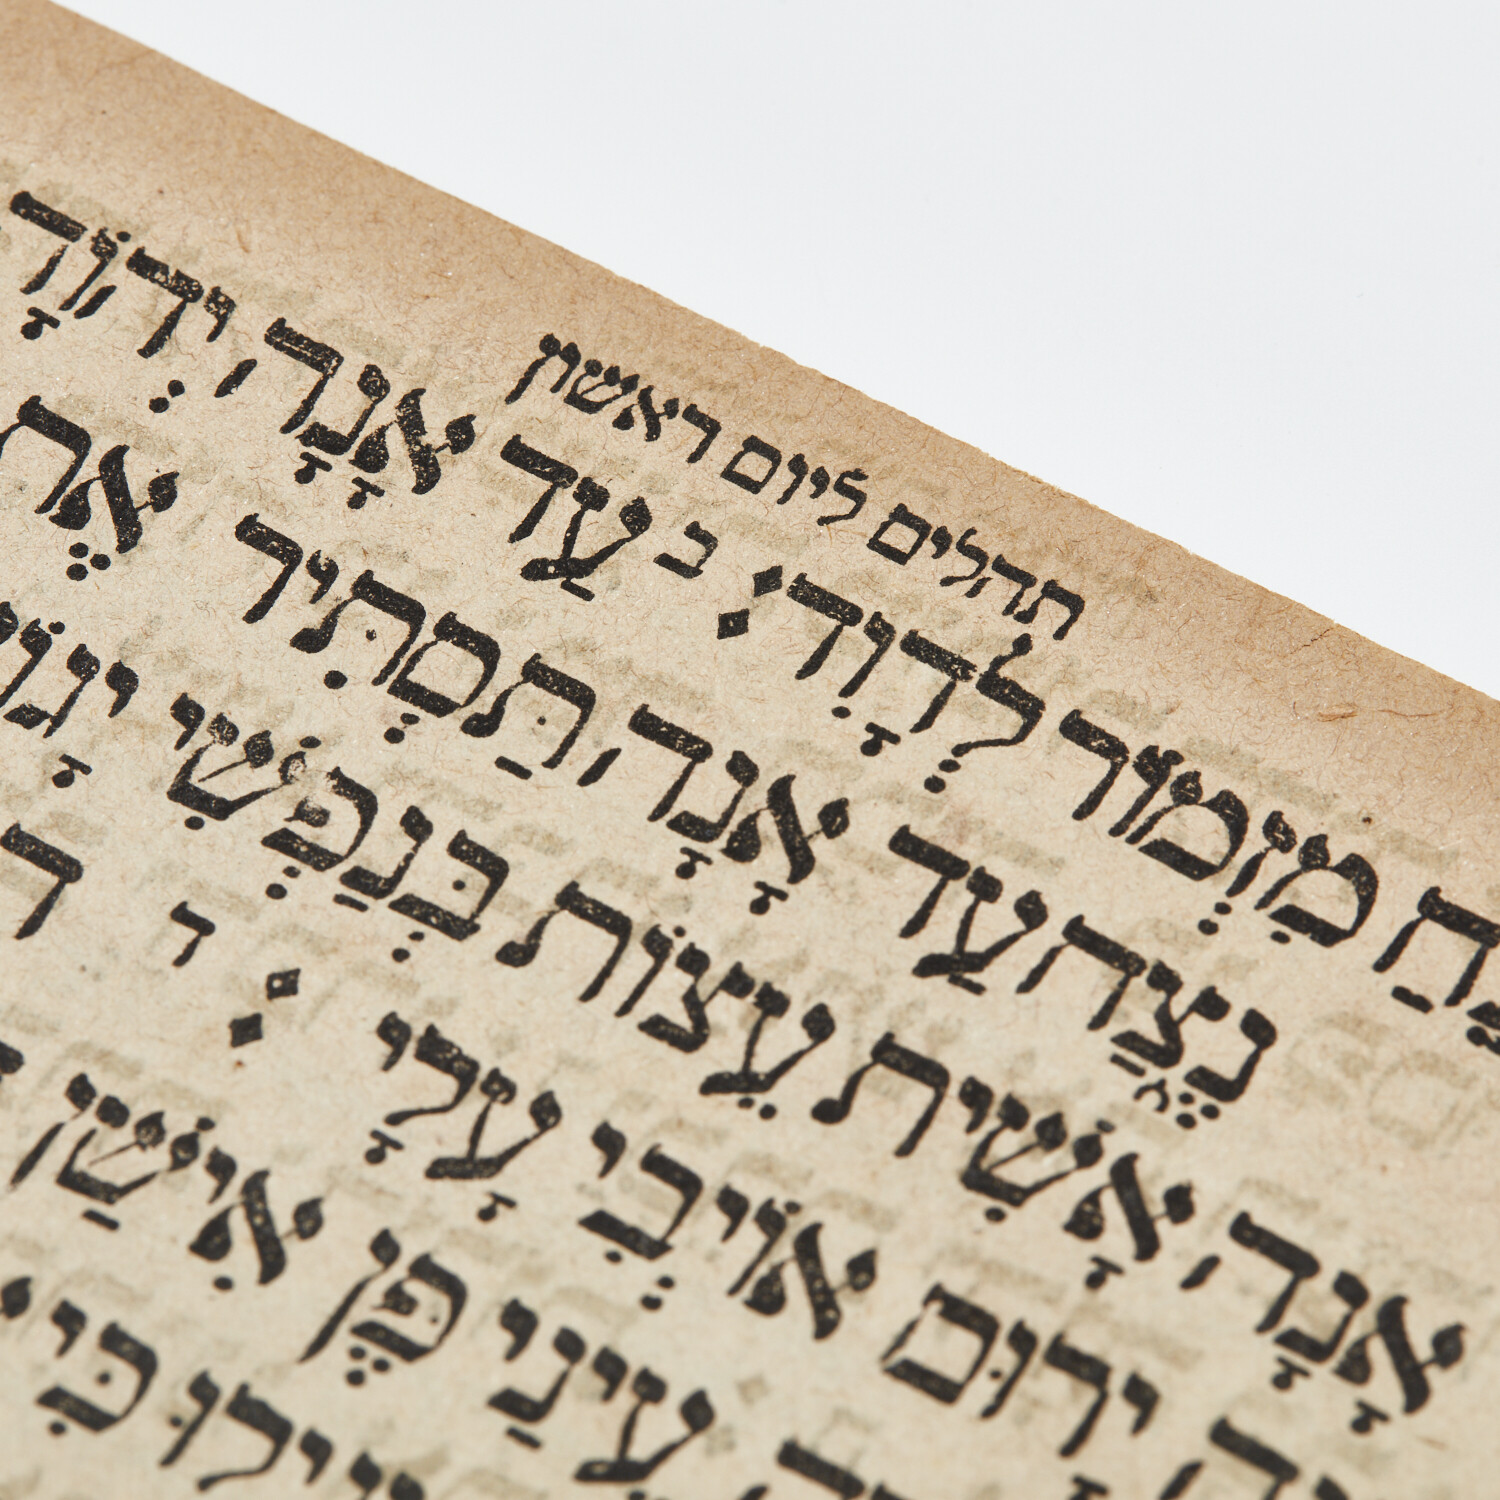 תהלים ליום ראשון
מִזְמוֹר לְדָוִד: ב עַד אָנָה יְהֹוָה
נֶצַ֑ח עַד אָנָה תַּסְתִּיר אֶת
אָנָה אָשִׁית עֵצוֹת בְּנַפְשִׁי
יָרוּם אוֹיְבִי עָלָי: ד
עֵינַי פֶּן אִישַׁן
כִּי